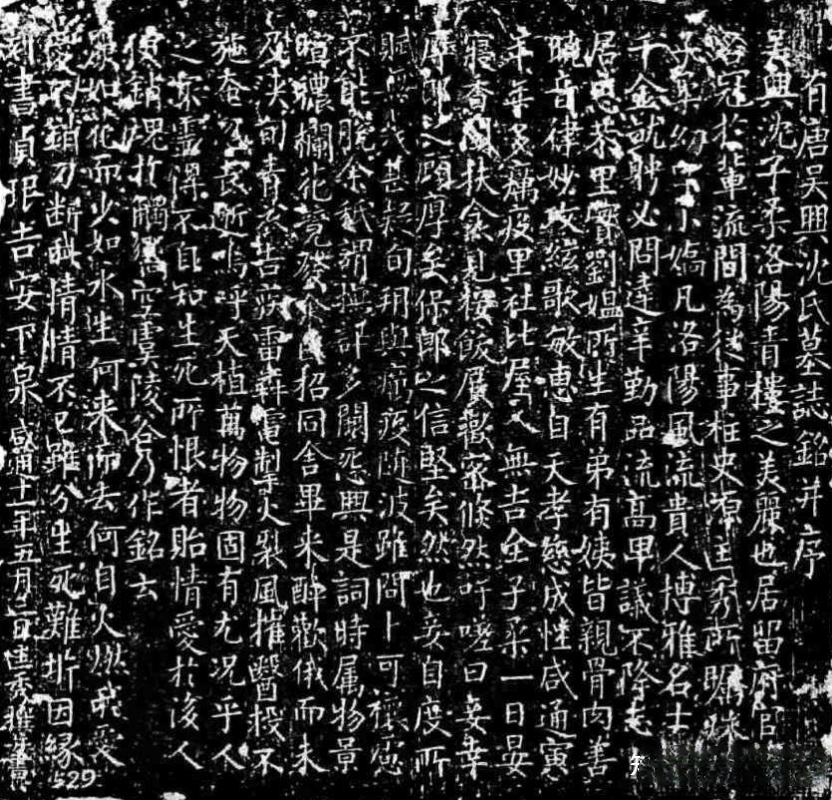 有唐吳興沈氏墓誌銘并序
吳興沈子柔洛陽青樓之美麗也居留府官
名冠於輩流間為從事柱史源匡秀所矚殊
子柔幼字小嬌凡洛陽風流貴人博雅名士每
千金就聘必問達辛勤品流高卑議不降志
居思恭里實劉媼所生有弟有姨皆親骨肉善
曉音律妙攻絃歌敏惠自天孝慈成性咸通寅
年年多癘疫里社比屋人無吉全子柔一日晏
寢香閨扶衾見接飫展歡密倏然吁嗟曰妾幸
辱郎之顧厚矣保郎之信堅矣然也妾自度所
賦無幾甚疑旬朔與癘疫隨波雖問卜可禳慮
不能脫余秖謂撫訝多闕怨興是詞時屬物景
暄穠欄花竟發余因招同舍畢來醉歡俄而未
及浹旬青衣告疾雷犇電掣火裂風摧醫救不
施奄忽長逝嗚呼天植萬物物固有尤況乎人
之最靈得不自知生死所恨者貽情愛於後人
便銷魂於觸嚮空虞陵谷乃作銘云
麗如花而少如水生何來而去何自火燃我愛
愛不銷刀斷我情情不已雖分生死難坼因緣
刻書貞珉吉安下泉 咸通十一年五月 日匡秀撰并書
529